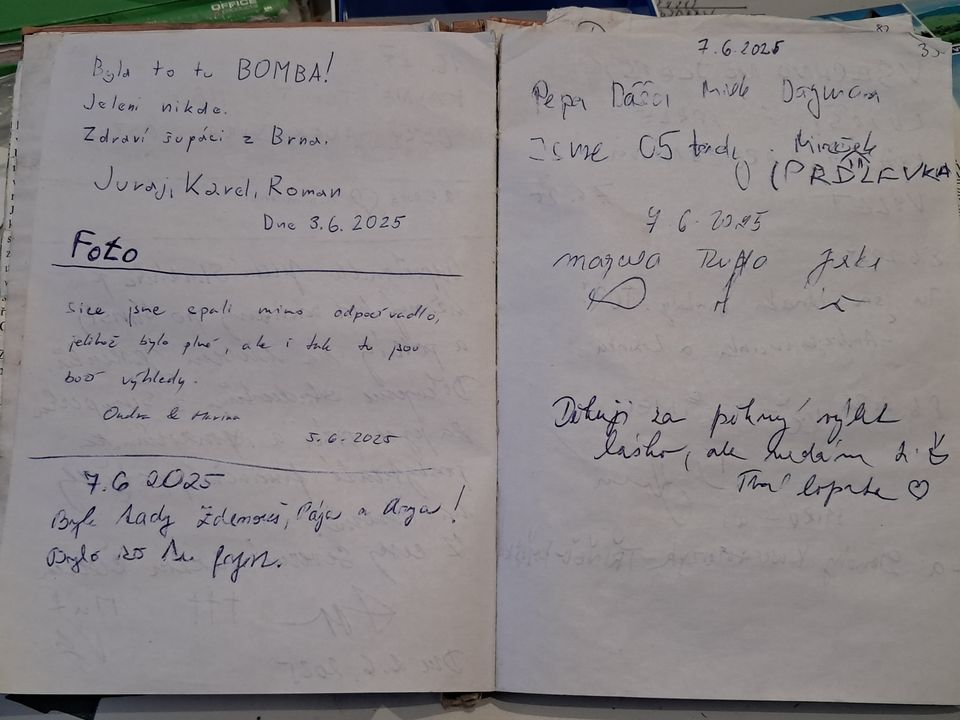 Byla to tu BOMBA!
Jeleni nikde.
Zdraví šupáci z Brna.
Juraj, Karel, Roman
Dne 3.6.2025
Foto
sice jsme spali mimo odpočívadlo,
jelikož bylo plné, ale i tak tu jsou
boží výhledy.
Ondra & Marina
5.6.2025
7.6 2025
Byli tady Zdenouš, Pája a !
Bylo to fajn.
7.6.2025
Pepa Dáša Mirek Dagmara
Jsme 05 tady.
7 6 2025
Děkuji za pěkný výlet
lásko, ale nedám
Tvá ♡
OFFICE